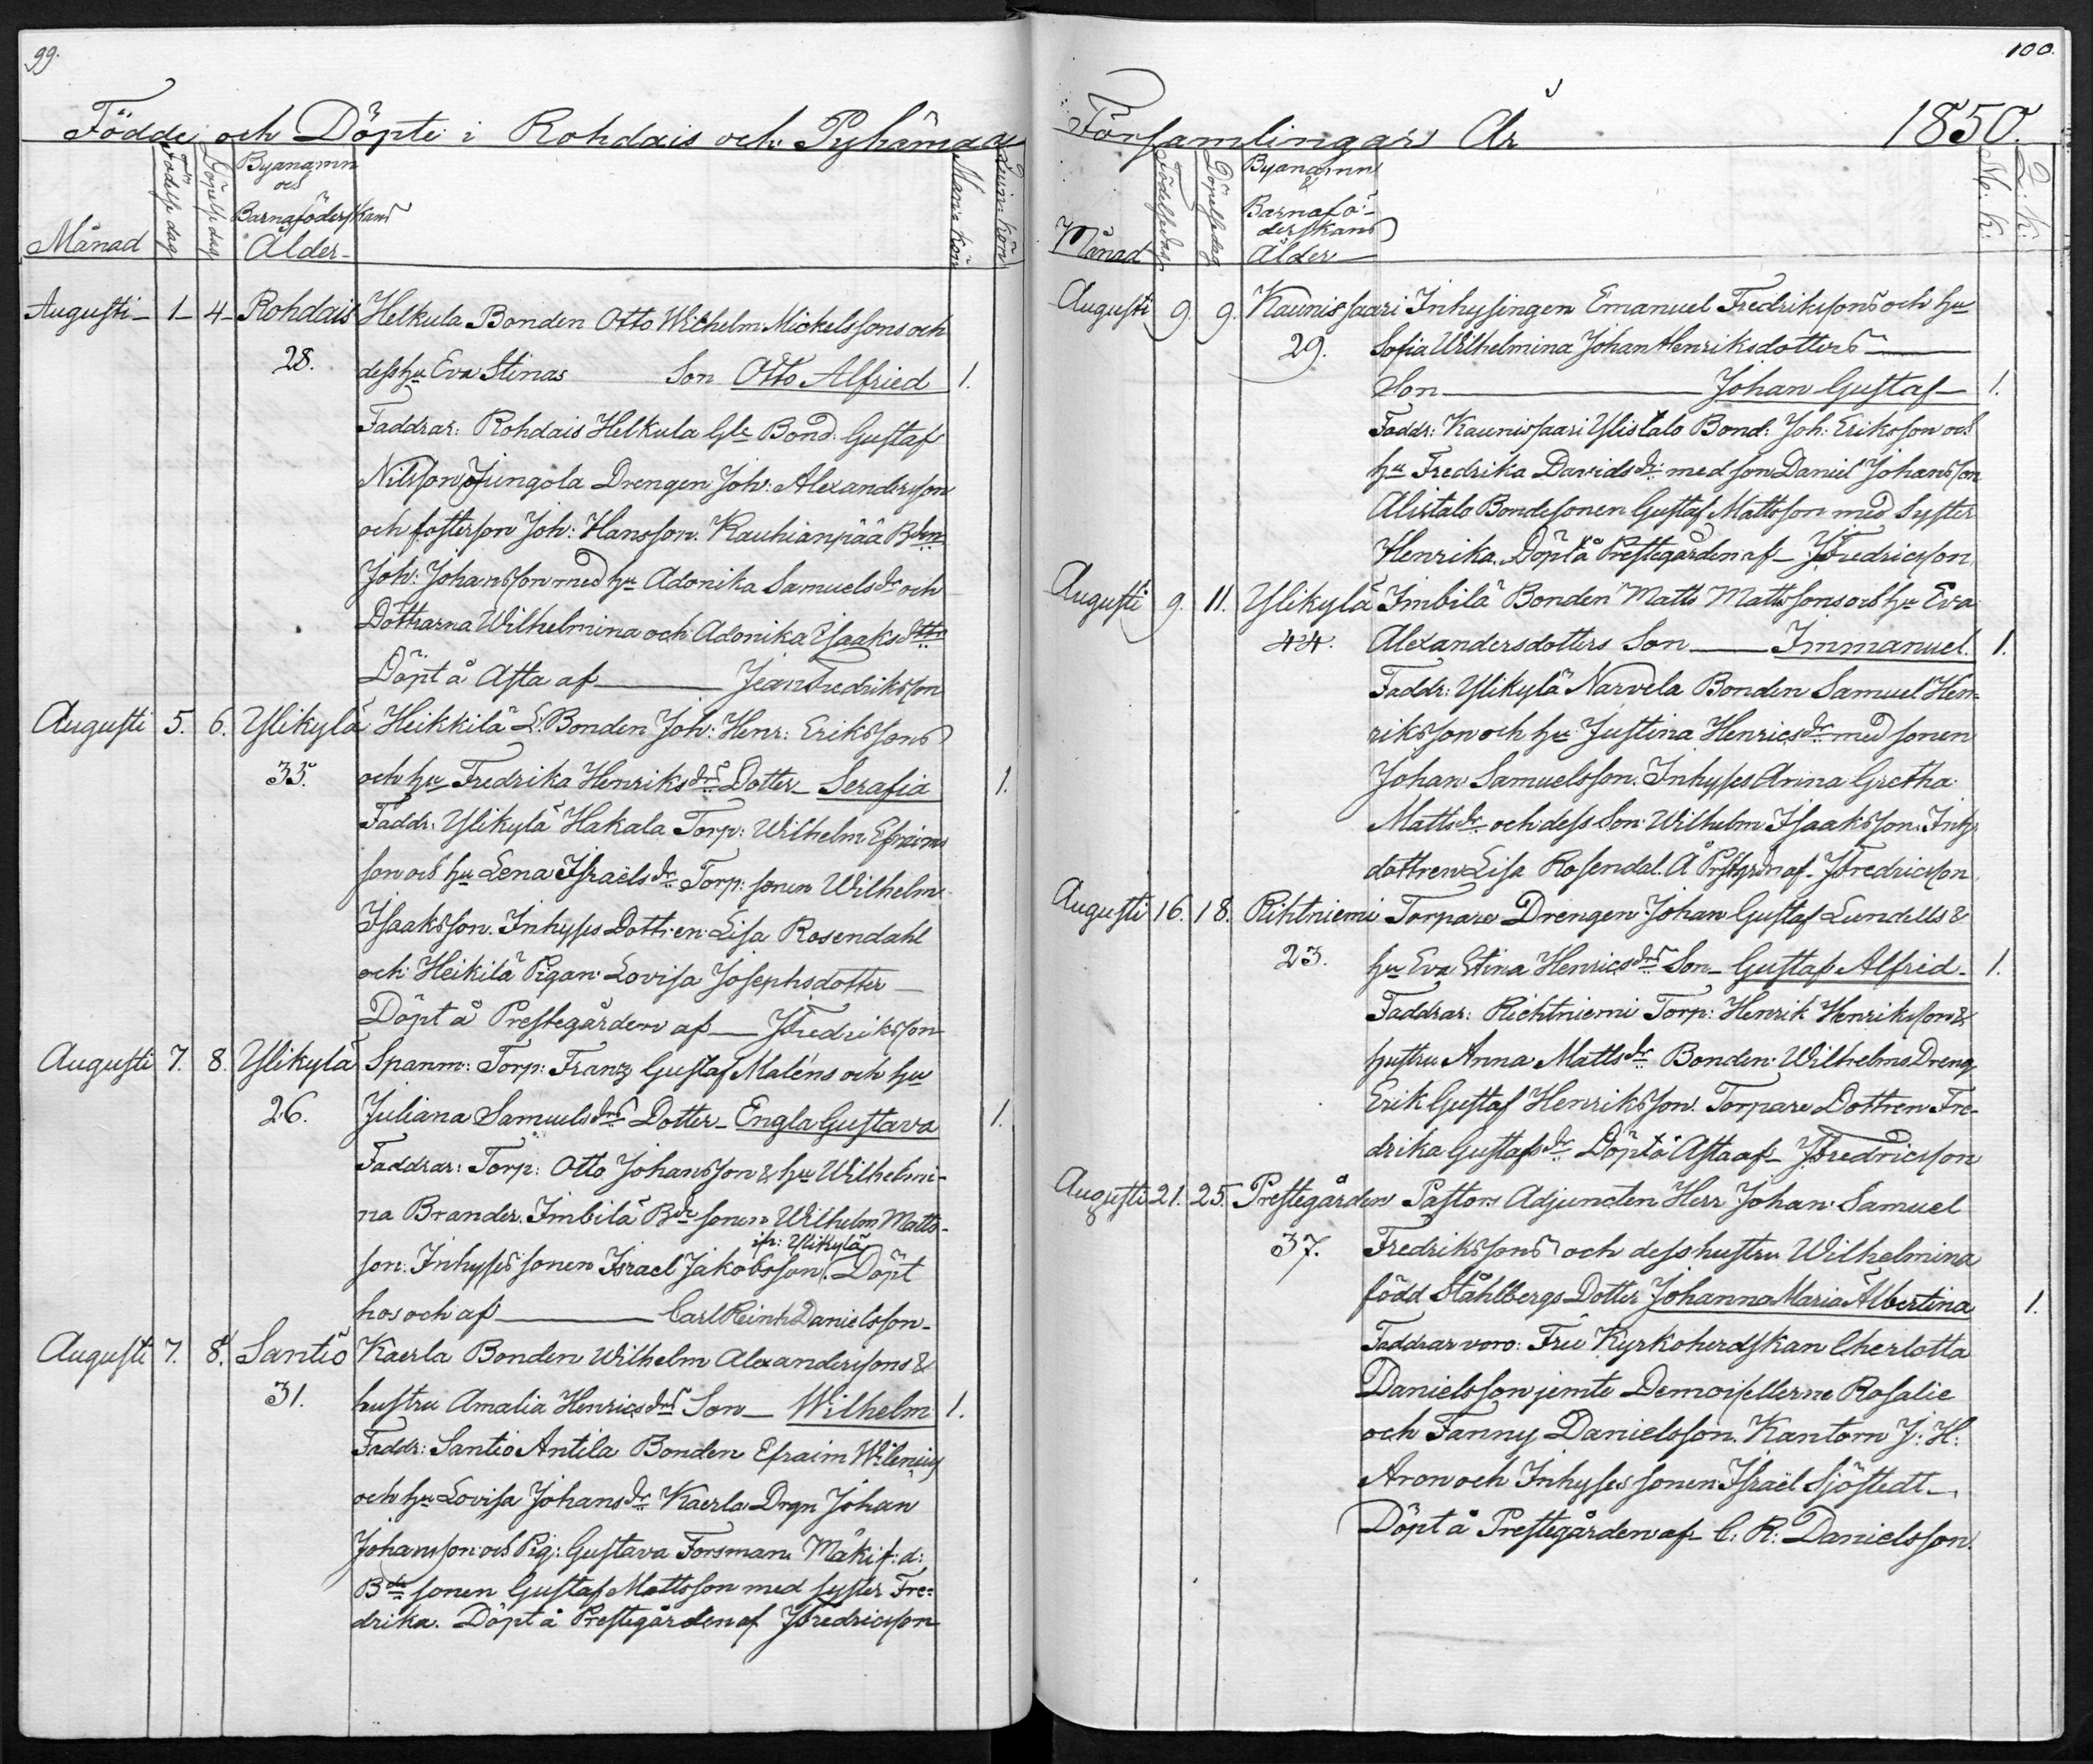 99.
Födde och Döpte i Rohdais och Pyhämaa
Månad
Födelse dag
Döpelse dag
Byanamn
och
Barnaföderskans
Ålder
Man-kön
Qvin-kön
Augusti 1 4 Rohdais Helkula Bonden Otto Wilhelm Mickelssons och
28. dess hu Eva Stinas Son Otto Alfried 1.
Faddrar: Rohdais Helkula Gle Bond: Gustaf
Nilsson Jungola Drengen Joh: Alexandersson
och fosterson Joh: Hansson. Kauhianpää Bdn
Joh: Johansson med hu Adonika Samuels dr och
Döttrarna Wilhelmina och Adonika Isaaks dttr
Döpt å Asta af Jean Fredriksson
Augusti 5. 6. Ylikylä Heikkilä L: Bonden Joh: Henr: Erikssons
33. och hu Fredrika Henriks drs Dotter Serafia 1.
Faddr: Ylikylä Hakala Torp: Wilhelm Efraims
son och hu Lena Israels dr Torp: sonen Wilhelm
Isaaksson. Inhyses Dottren Lisa Rosendahl
och Heikilä Pigan Lovisa Josephsdotter
Döpt å Prestegården af JFredriksson
Augusti 7. 8. Ylikylä Spanm: Torp: Franz Gustaf Maléns och hu
26. Juliana Samuels drs Dotter Engla Gustava 1.
Faddrar: Torp: Otto Johansson & hu Wilhelmi-
na Brander. Imbilä Bde sonen Wilhelm Matts-
son: Inhyses sonen Israel Jakobsson ifr: Ylikylä. Döpt
hos och af Carl Reinh Danielsson
Augusti 7. 8. Santio Kaerla Bonden Wilhelm Alexanderssons &
31. hustru Amalia Henrics drs Son Wilhelm 1.
Faddr: Santio Antila Bonden Efraim Wilenius
och hu Lovisa Johans dr Kaerla Drgn Johan
Johansson och Pig: Gustava Forsman. Mäki f: d:
Bde sonen Gustaf Mattsson med syster Fre-
drika. Döpt å Prestegården af JFredricsson
100.
Församlingar År 1850.
Månad
Födelsedag
Döpelsedag
Byanamn
&
Barnafö-
derskans
Ålder
M: K:
Q: K:
Augusti 9. 9. Kaunissaari Inhysingen Emanuel Fredrikssons och hu
29. Sofia Wilhelmina Johan Henriksdotters
Son Johan Gustaf 1.
Faddr: Kaunissaari Ylistalo Bond: Joh: Eriksson och
hu Fredrika Davids dr: med son Daniel Johansson
Alistalo Bondesonen Gustaf Mattsson med Syster
Henrika. Döpt å Prestegården af JFredricsson
Augusti 9. 11. Ylikylä Imbilä Bonden Matts Mattssons och hu Eva
44. Alexandersdotters Son Immanuel. 1.
Faddr: Ylikylä Narvela Bonden Samuel Hen-
riksson och hu Justina Henrics dr med sonen
Johan Samuelsson. Inhyses Anna Gretha
Matts dr och dess Son Wilhelm Isaaksson. Inhy
dottren Lisa Rosendal. Å Prstgrdn af JFredricsson
Augusti 16. 18. Rihtniemi Torpare Drengen Johan Gustaf Lundells &
23. hu Eva Stina Henrics drs Son Gustaf Alfrid 1.
Faddrar: Richtniemi Torp: Henrik Henriksson &
hustru Anna Matts dr Bonden Wilhelms Dreng
Erik Gustaf Henriksson. Torpare Dottren Fre-
drika Gustafs dr Döpt å Asta af JFredricsson
Augusti 21. 25. Prestegården Pastors Adjuncten Herr Johan Samuel
37. Fredrikssons och dess hustru Wilhelmina
född Ståhlbergs Dotter Johanna Maria Albertina 1.
Faddrar voro: Fru Kyrkoherdskan Cherlotta
Danielsson jemte Demoisellerne Rosalie
och Fanny Danielsson. Kantorn J: H:
Aron och Inhyses sonen Israël Sjöstedt
Döpt å Prestegården af C: R: Danielsson.